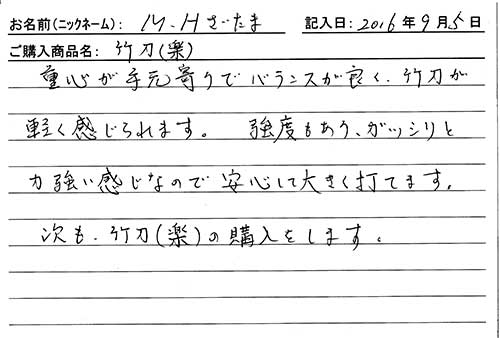 お名前(ニックネーム): M.Hさいたま 記入日:2016年9月5日
ご購入商品名: 竹刀(楽)
重心が手元寄りでバランスが良く、竹刀が
軽く感じられます。 強度もあり、ガッシリと
力強い感じなので安心して大きく打てます。
次も、竹刀(楽)の購入をします。